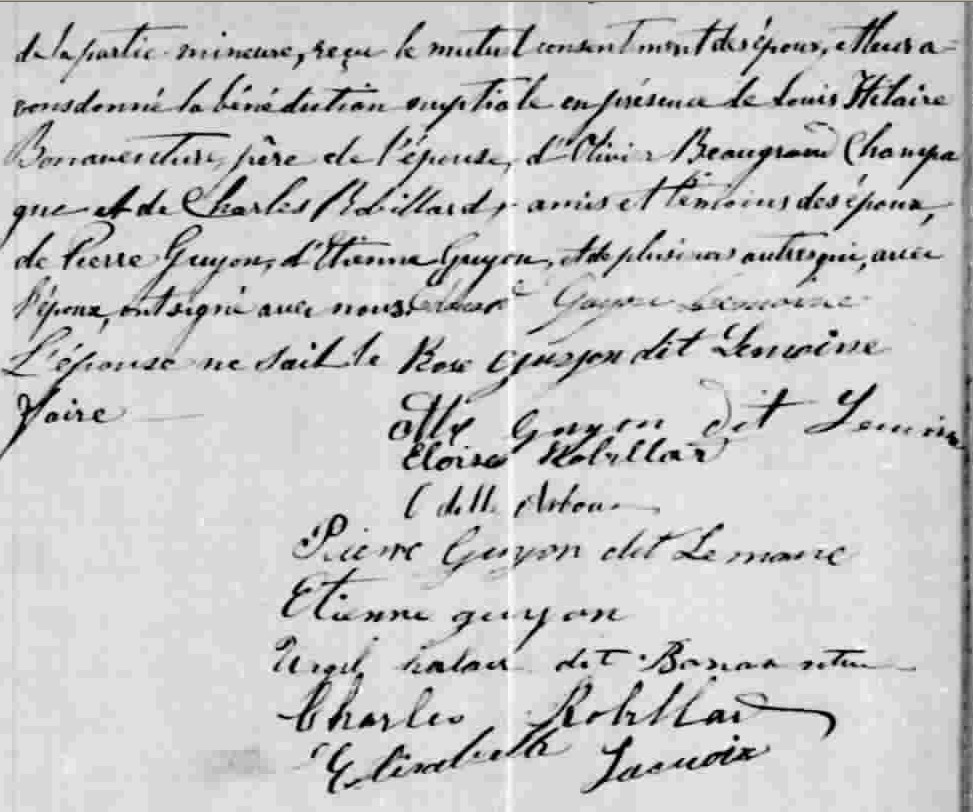 de la partie mineure, reçu le mutuel consentment des époux, et leur a-
vons donné la bénédiction nuptiale en présence de Louis Hilaire
Bonaventure, père de l'épouse, d'Olivier Beaugrand Champa
gne et de Charles Robillard, amis et témoins des époux,
de Pierre Guyon, d'Etienne Guyon, et de plusieurs autres qui, avec
l'époux, ont signé avec nous. Guyon Lemoine
L'épouse ne sait le Rose Guyon dit Lemoine
faire
Guyon dit Lemoine
Eloise Robillard
Pierre Guyon dit Lemoine
Etienne guyon
dit Bonaventure
Charles Robillard
Elisabeth Lacroix